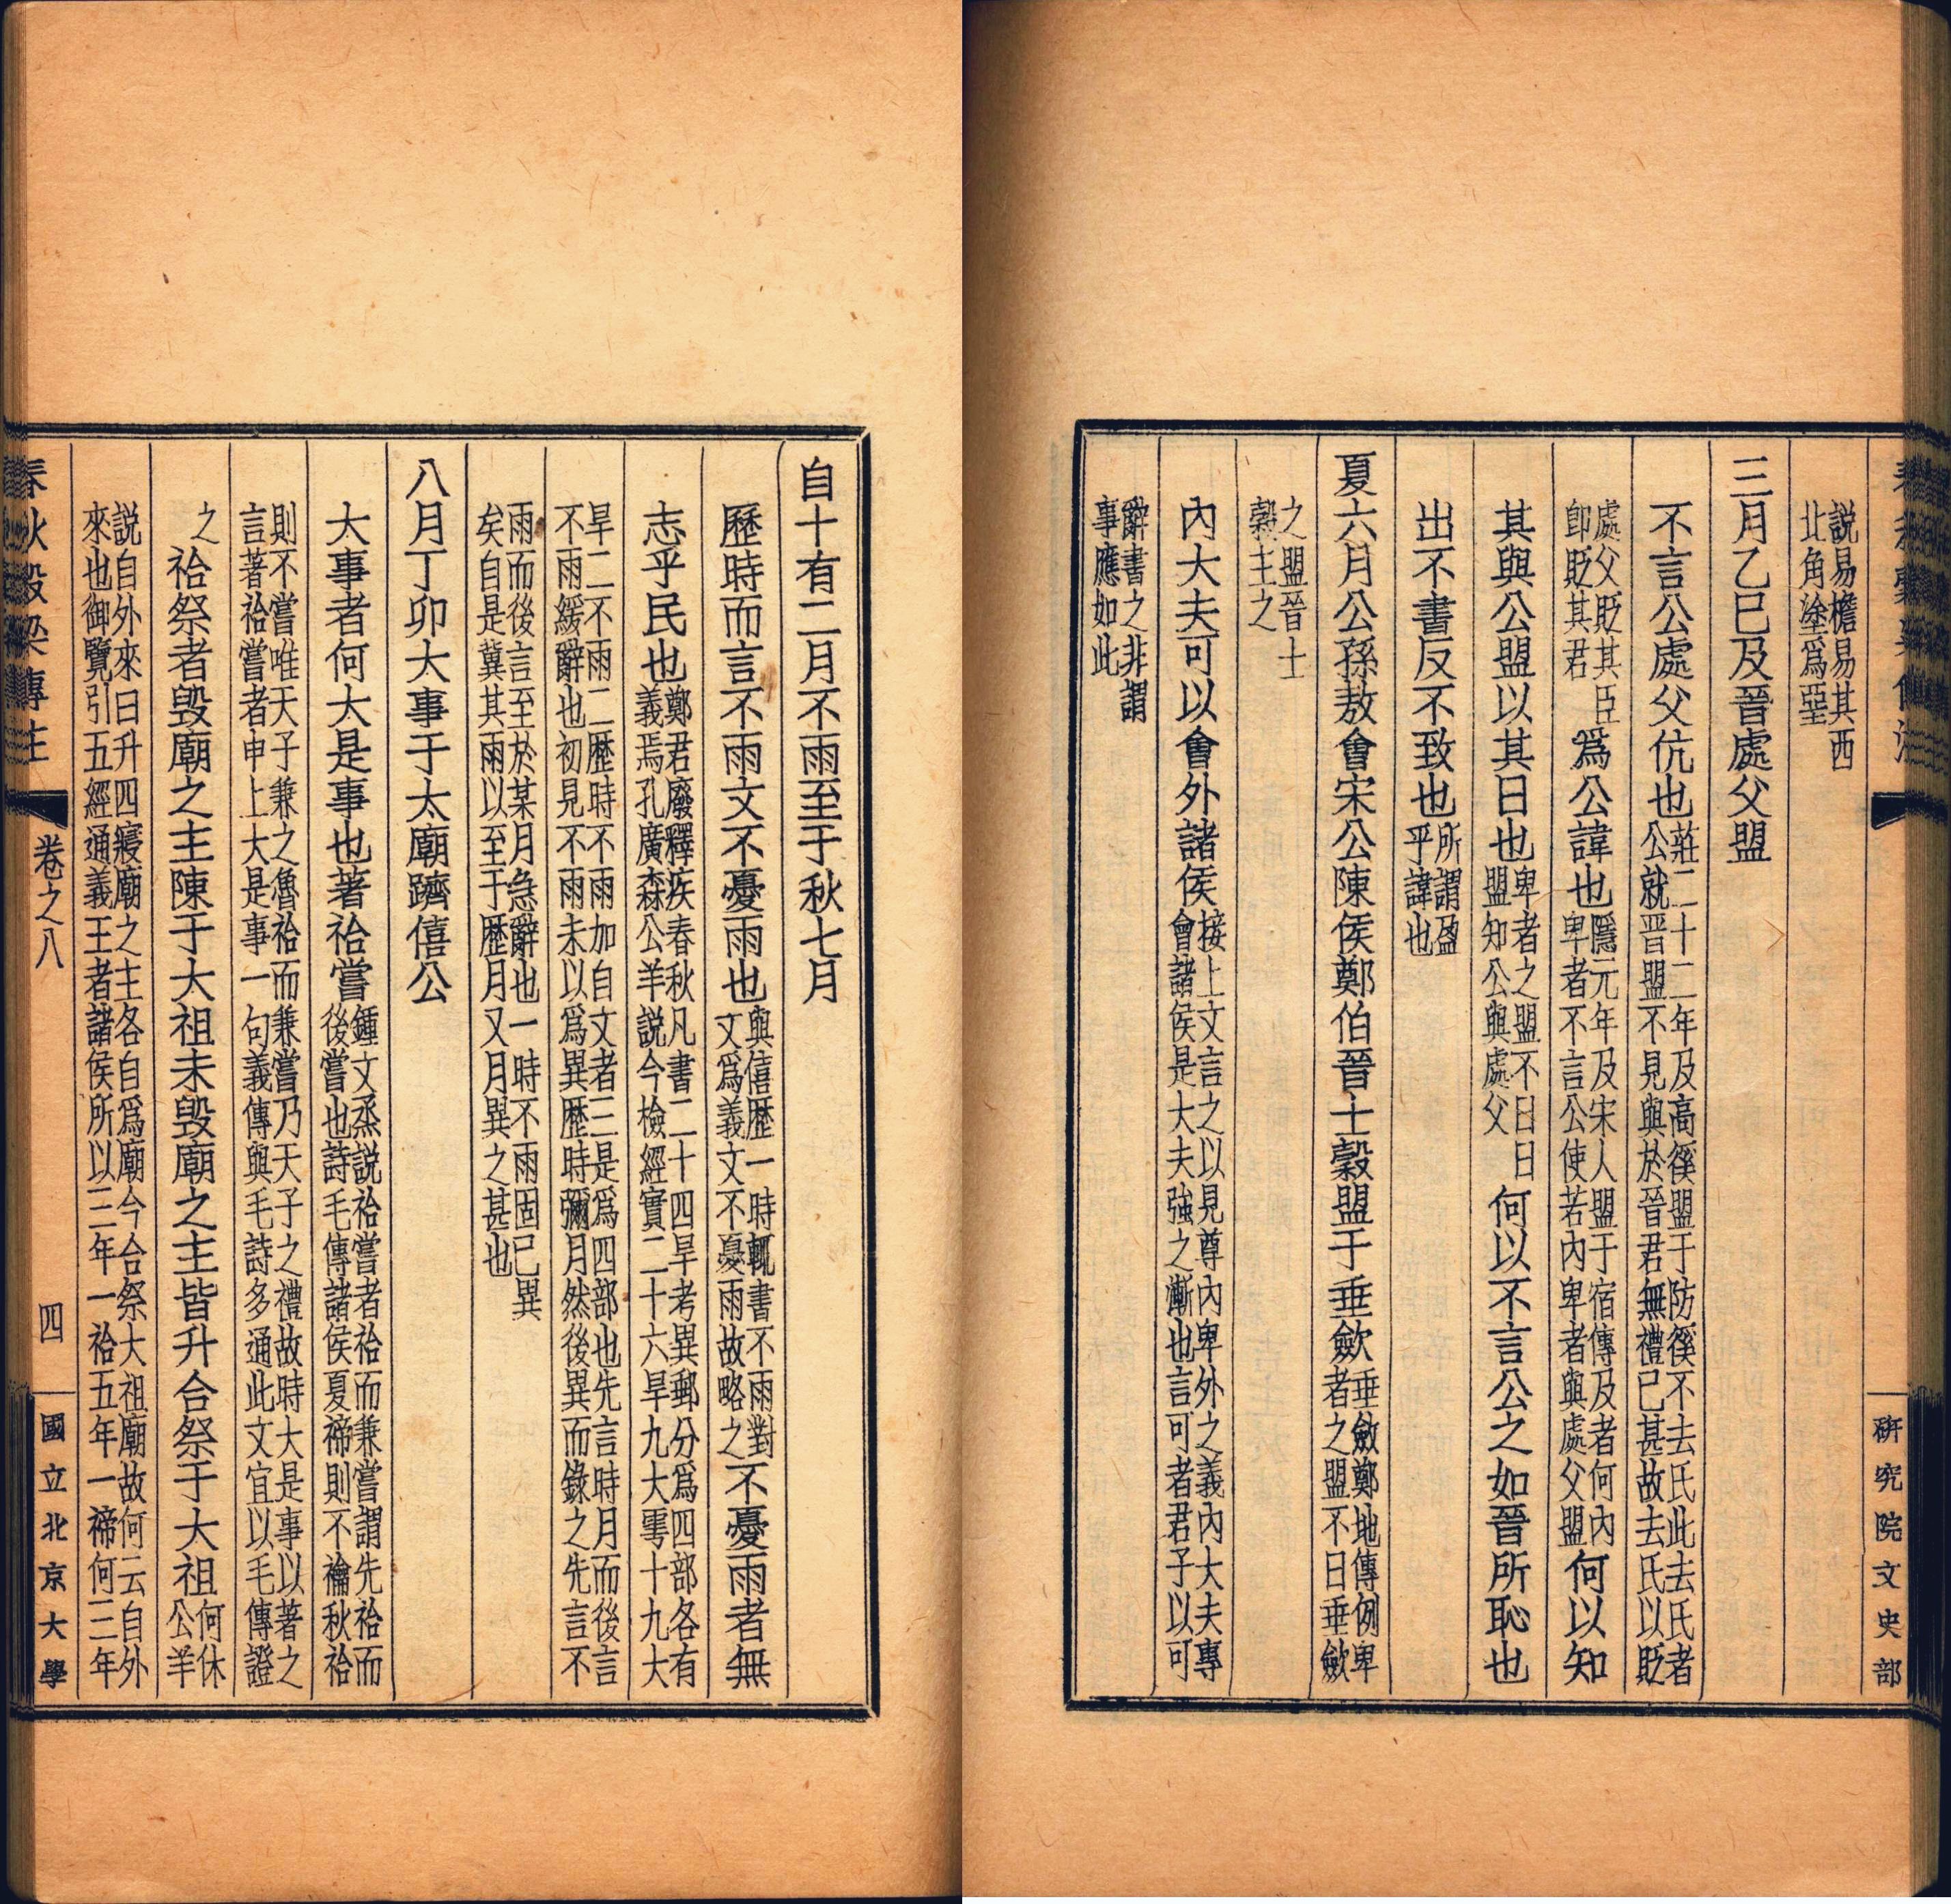 說易檐易其西
北角塗爲堊
三月乙巳及晉處父盟
不言公處父伉也莊二十二年及高徯盟于防徯不去氏此去氏者
公就晉盟不見與於晉君無禮已甚故去氏以貶
處父貶其臣
卽貶其君爲公諱也隱元年及宋人盟于宿傳及者何內
卑者不言公使若內卑者與處父盟何以知
其與公盟以其日也卑者之盟不日日
盟知公與處父何以不言公之如晉所恥也
出不書反不致也所謂盈
乎諱也
夏六月公孫敖會宋公陳侯鄭伯晉士縠盟于垂歛垂斂鄭地傳例卑
者之盟不日垂歛
之盟晉士
縠主之
內大夫可以會外諸侯接上文言之以見尊內卑外之義內大夫專
會諸侯是大夫強之漸也言可者君子以可
辭書之非謂
事應如此
研究院文史部
自十有二月不雨至于秋七月
歷時而言不雨文不憂雨也與僖歷一時輒書不雨對
文爲義文不憂雨故略之不憂雨者無
志乎民也鄭君廢釋疾春秋凡書二十四旱考異郵分爲四部各有
義焉孔廣森公羊說今檢經實二十六旱九大雩十九大
旱二不雨二歷時不雨加自文者三是爲四部也先言時月而後言
不雨緩辭也初見不雨未以爲異歷時彌月然後異而錄之先言不
雨而後言至於某月急辭也一時不雨固已異
矣自是冀其雨以至于歷月又月異之甚也
八月丁卯大事于太廟躋僖公
大事者何大是事也著祫嘗鍾文烝說祫嘗者祫而兼嘗謂先祫而
後嘗也詩毛傳諸侯夏禘則不礿秋祫
則不嘗唯天子兼之魯祫而兼嘗乃天子之禮故時大是事以著之
言著祫嘗者申上大是事一句義傳與毛詩多通此文宜以毛傳證
之
祫祭者毀廟之主陳于大祖未毀廟之主皆升合祭于大祖何休
公羊
說自外來曰升四寢廟之主各自爲廟今合祭大祖廟故何云自外
來也御覽引五經通義王者諸侯所以三年一祫五年一禘何三年
春秋穀梁傳注
卷之八
四
國立北京大學